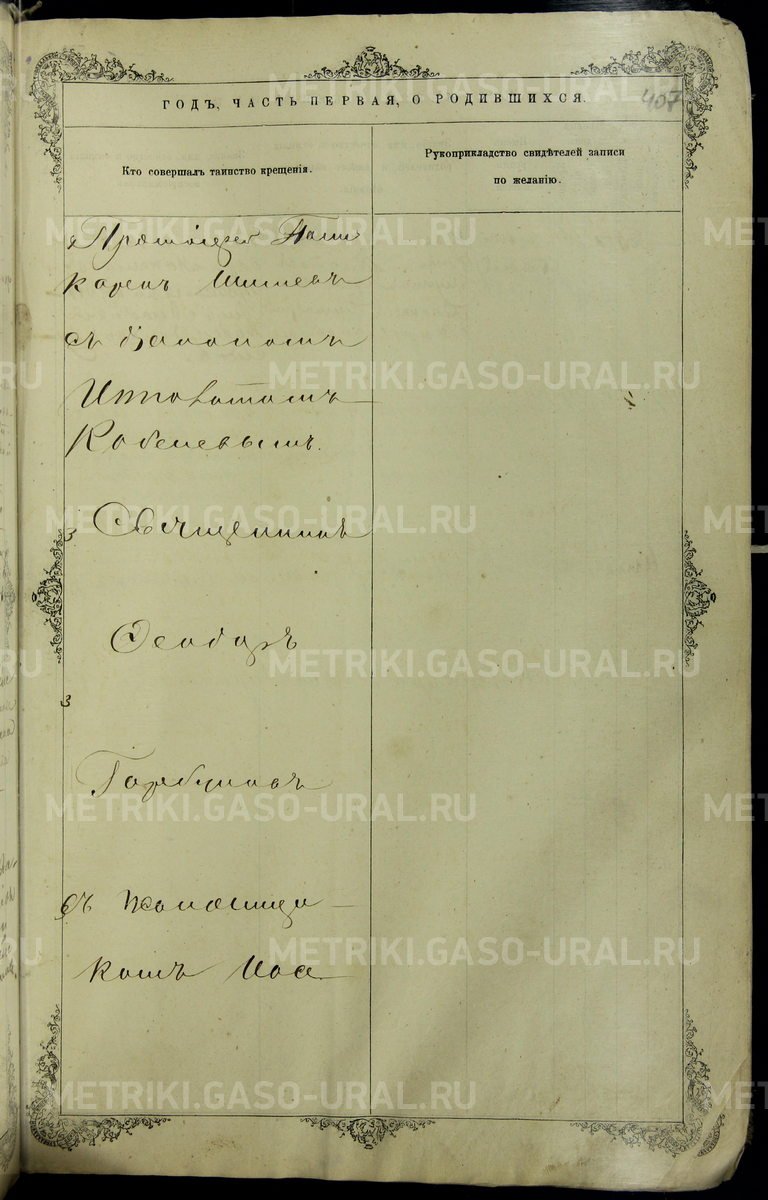 ГОДЪ, ЧАСТЬ ПЕРВАЯ, О РОДИВШИХСЯ.
407
Кто совершалъ таинство крещенія.
Рукоприкладство свидѣтелей записи
по желанію.
Протоіерей Поли
карпъ Шишевъ
съ Діакономъ
Ипполитомъ
Кобелевымъ.
Священникъ
Ѳеодоръ
Горбуновъ
съ псаломщи
комъ Иоа
METRIKI.GASO-URAL.RU